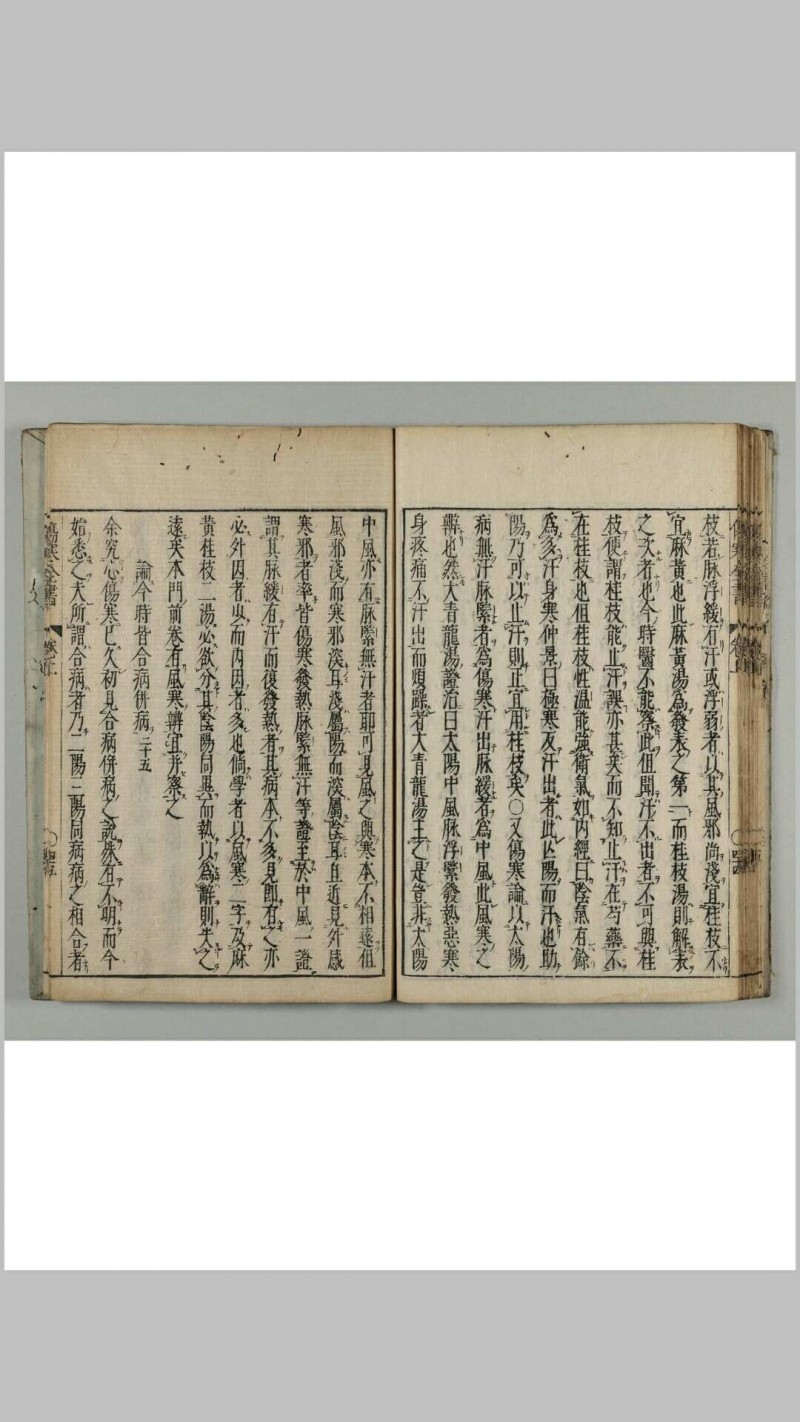 枝若脉浮緩有汗或浮弱者以其風邪尚淺宜桂枝不
宜麻黄也此麻黄湯為發表之第一而桂枝湯則解表
之次者也今時醫不能察此但聞汗不出者不可與桂
枝便謂桂枝能止汗誤亦甚矣而不知止汗在芍藥不
在桂枝也但桂枝性温能強衛氣如内經曰陰氣有餘
為多汗身寒仲景曰極寒反汗出者此亡陽而汗也助
陽乃可以止汗則正宜用桂枝矣〇又傷寒論以太陽
病無汗脉緊者為傷寒汗出脉緩者為中風此風寒之
辨也然大青龍湯證治曰太陽中風脉浮緊發熱惡寒
身疼痛不汗出而煩躁者大青龍湯主之是豈非太陽
中風亦有脉緊無汗者耶可見風之與寒本不相遠但
風邪淺而寒邪深耳淺屬陽而深屬陰耳且近見外感
寒邪者率皆傷寒發熱脉緊無汗等證至於中風一證
謂其脉緩有汗而復發熱者其病本不多見即有之亦
必外因者少而内因者多也倘學者以風寒二字及麻
黄桂枝二湯必欲分其陰陽同異而執以為辭則失之
遠矣本門前卷有風寒辨宜并察之
論今時皆合病併病 二十五
余究心傷寒已久初見合病併病之說殊有不明而今
始悉之夫所謂合病者乃二陽三陽同病病之相合者